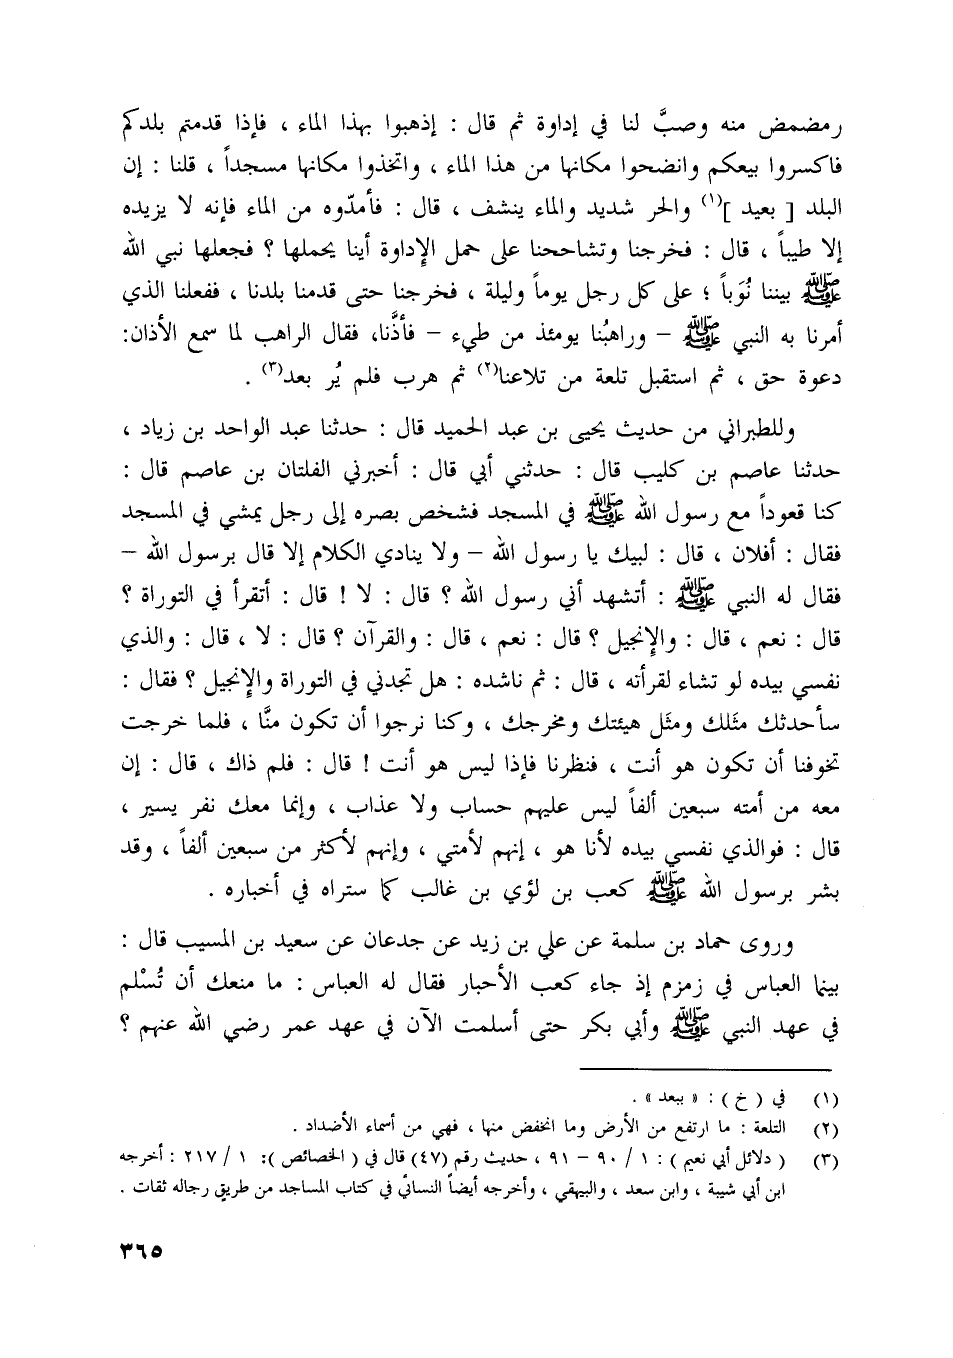 رمضمض منه وصبَّ لنا في إداوة ثم قال : إذهبوا بهذا الماء ، فإذا قدمتم بلدكم
فاكسروا بيعكم وانضحوا مكانها من هذا الماء ، واتخذوا مكانها مسجداً ، قلنا : إن
البلد [ بعيد ](١) والحر شديد والماء ينشف ، قال : فأمدّوه من الماء فإنه لا يزيده
إلا طيباً ، قال : فخرجنا وتشاححنا على حمل الإداوة أينا يحملها ؟ فجعلها نبي الله
ﷺ بيننا نُوَباً ؛ على كل رجل يوماً وليلة ، فخرجنا حتى قدمنا بلدنا ، ففعلنا الذي
أمرنا به النبي ﷺ – وراهبُنا يومئذ من طيء – فأذَّنا، فقال الراهب لما سمع الأذان:
دعوة حق ، ثم استقبل تلعة من تلاعنا(٢) ثم هرب فلم يُر بعد(٣) .
وللطبراني من حديث يحيى بن عبد الحميد قال : حدثنا عبد الواحد بن زياد ،
حدثنا عاصم بن كليب قال : حدثني أبي قال : أخبرني الفلتان بن عاصم قال :
كنا قعوداً مع رسول الله ﷺ في المسجد فشخص بصره إلى رجل يمشي في المسجد
فقال : أفلان ، قال : لبيك يا رسول الله – ولا ينادي الكلام إلا قال برسول الله –
فقال له النبي ﷺ : أتشهد أني رسول الله ؟ قال : لا ! قال : أتقرأ في التوراة ؟
قال : نعم ، قال : والإنجيل ؟ قال : نعم ، قال : والقرآن ؟ قال : لا ، قال : والذي
نفسي بيده لو تشاء لقرأته ، قال : ثم ناشده : هل تجدني في التوراة والإنجيل ؟ فقال :
سأحدثك مثَلك ومثَل هيئتك ومخرجك ، وكنا نرجوا أن تكون منَّا ، فلما خرجت
تخوفنا أن تكون هو أنت ، فنظرنا فإذا ليس هو أنت ! قال : فلم ذاك ، قال : إن
معه من أمته سبعين ألفاً ليس عليهم حساب ولا عذاب ، وإنما معك نفر يسير ،
قال : فوالذي نفسي بيده لأنا هو ، إنهم لأمتي ، وإنهم لأكثر من سبعين ألفاً ، وقد
بشر برسول الله ﷺ كعب بن لؤي بن غالب كما ستراه في أخباره .
وروى حماد بن سلمة عن علي بن زيد عن جدعان عن سعيد بن المسيب قال :
بينما العباس في زمزم إذ جاء كعب الأحبار فقال له العباس : ما منعك أن تُسْلم
في عهد النبي ﷺ وأبي بكر حتى أسلمت الآن في عهد عمر رضي الله عنهم ؟
(١) في ( خ ) : « يبعد » .
(٢) التلعة : ما ارتفع من الأرض وما انخفض منها ، فهي من أسماء الأضداد .
(٣) ( دلائل أبي نعيم ) : ١ / ٩٠ – ٩١ ، حديث رقم (٤٧) قال في ( الخصائص ): ١ / ٢١٧ : أخرجه
ابن أبي شيبة ، وابن سعد ، والبيهقي ، وأخرجه أيضاً النسائي في كتاب المساجد من طريق رجاله ثقات .
٣٦٥